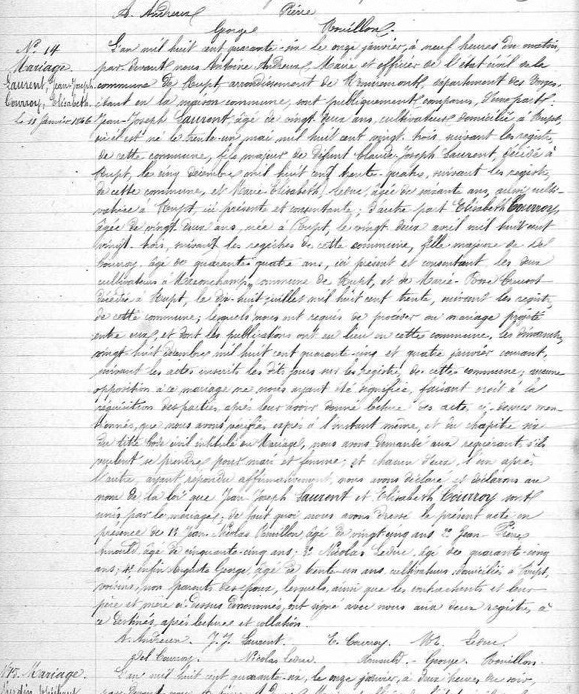 A. Andreux Pierre
George Couillon
No. 14
Mariage
Laurent, Jean-Joseph
Courroy, Elisabeth
Le 11 Janvier 1846
L'an mil huit cent quarante-six le onze janvier, à neuf heures du matin,
par devant nous Antoine Andreux, Maire et officier de l'état civil de la
commune de Rupt, arrondissement de Remiremont, département des Vosges,
étant en la maison commune, sont publiquement comparus, d'une part:
Jean-Joseph Laurent, âgé de vingt deux ans, cultivateur domicilié à Rupt,
où il est né le trente-un mai mil huit cent vingt-trois, suivant les registres
de cette commune, fils majeur de défunt Claude-Joseph Laurent, décédé à
Rupt, le cinq décembre mil huit cent trente-quatre, suivant les registres
de cette commune, et Marie-Elisabeth Leduc, âgée de soixante ans, culti-
vatrice à Rupt, ici présente et consentante; d'autre part Elisabeth Courroy,
âgée de vingt deux ans, née à Rupt, le vingt deux avril mil huit cent
vingt-trois, suivant les registres de cette commune, fille majeure de
Courroy, âgé de quarante-quatre ans, ici présent et consentant
cultivateur à Maxonchamp, commune de Rupt, et de Marie-Rose
décédée à Rupt, le dix-huit juillet mil huit cent trente, suivant les registres
de cette commune; lesquels nous ont requis de procéder au mariage projeté
entre eux, et dont les publications ont eu lieu en cette commune, les dimanches
vingt-huit décembre mil huit cent quarante-cinq et quatre janvier courant,
suivant les actes inscrits les dits jours sur les registres de cette commune; aucune
opposition à ce mariage ne nous ayant été signifiée, faisant droit à la
réquisition des parties, après leur avoir donné lecture des actes ci-dessus men-
tionnés, que nous avons à l'instant même, et du chapitre six
du titre du Code civil intitulé du Mariage, nous avons demandé aux requérants s'ils
veulent se prendre pour mari et femme; et chacun d'eux, l'un après
l'autre, ayant répondu affirmativement, nous avons déclaré et déclarons au
nom de la loi que Jean-Joseph Laurent et Elisabeth Courroy sont
unis par le mariage; de suite quoi nous avons dressé le présent acte en
présence de 1° Jean-Nicolas Couillon, âgé de vingt-cinq ans; 2° Jean Pierre
Arnould, âgé de cinquante-cinq ans; 3° Nicolas Leduc, âgé de quarante-cinq
ans; 4° enfin Auguste George, âgé de trente-un ans, cultivateurs domiciliés à Rupt,
voisins, non parents des époux, lesquels, ainsi que les contractants et leur
père et mère ci-dessus dénommés, ont signé avec nous aux deux registres, à
ce destinés, après lecture et collation.
A. Andreux J. J. Laurent E. Courroy M. E. Leduc
Courroy Nicolas Leduc Arnould George Couillon
No. 15. Mariage.
L'an mil huit cent quarante-six, le onze janvier, à deux heures du soir,